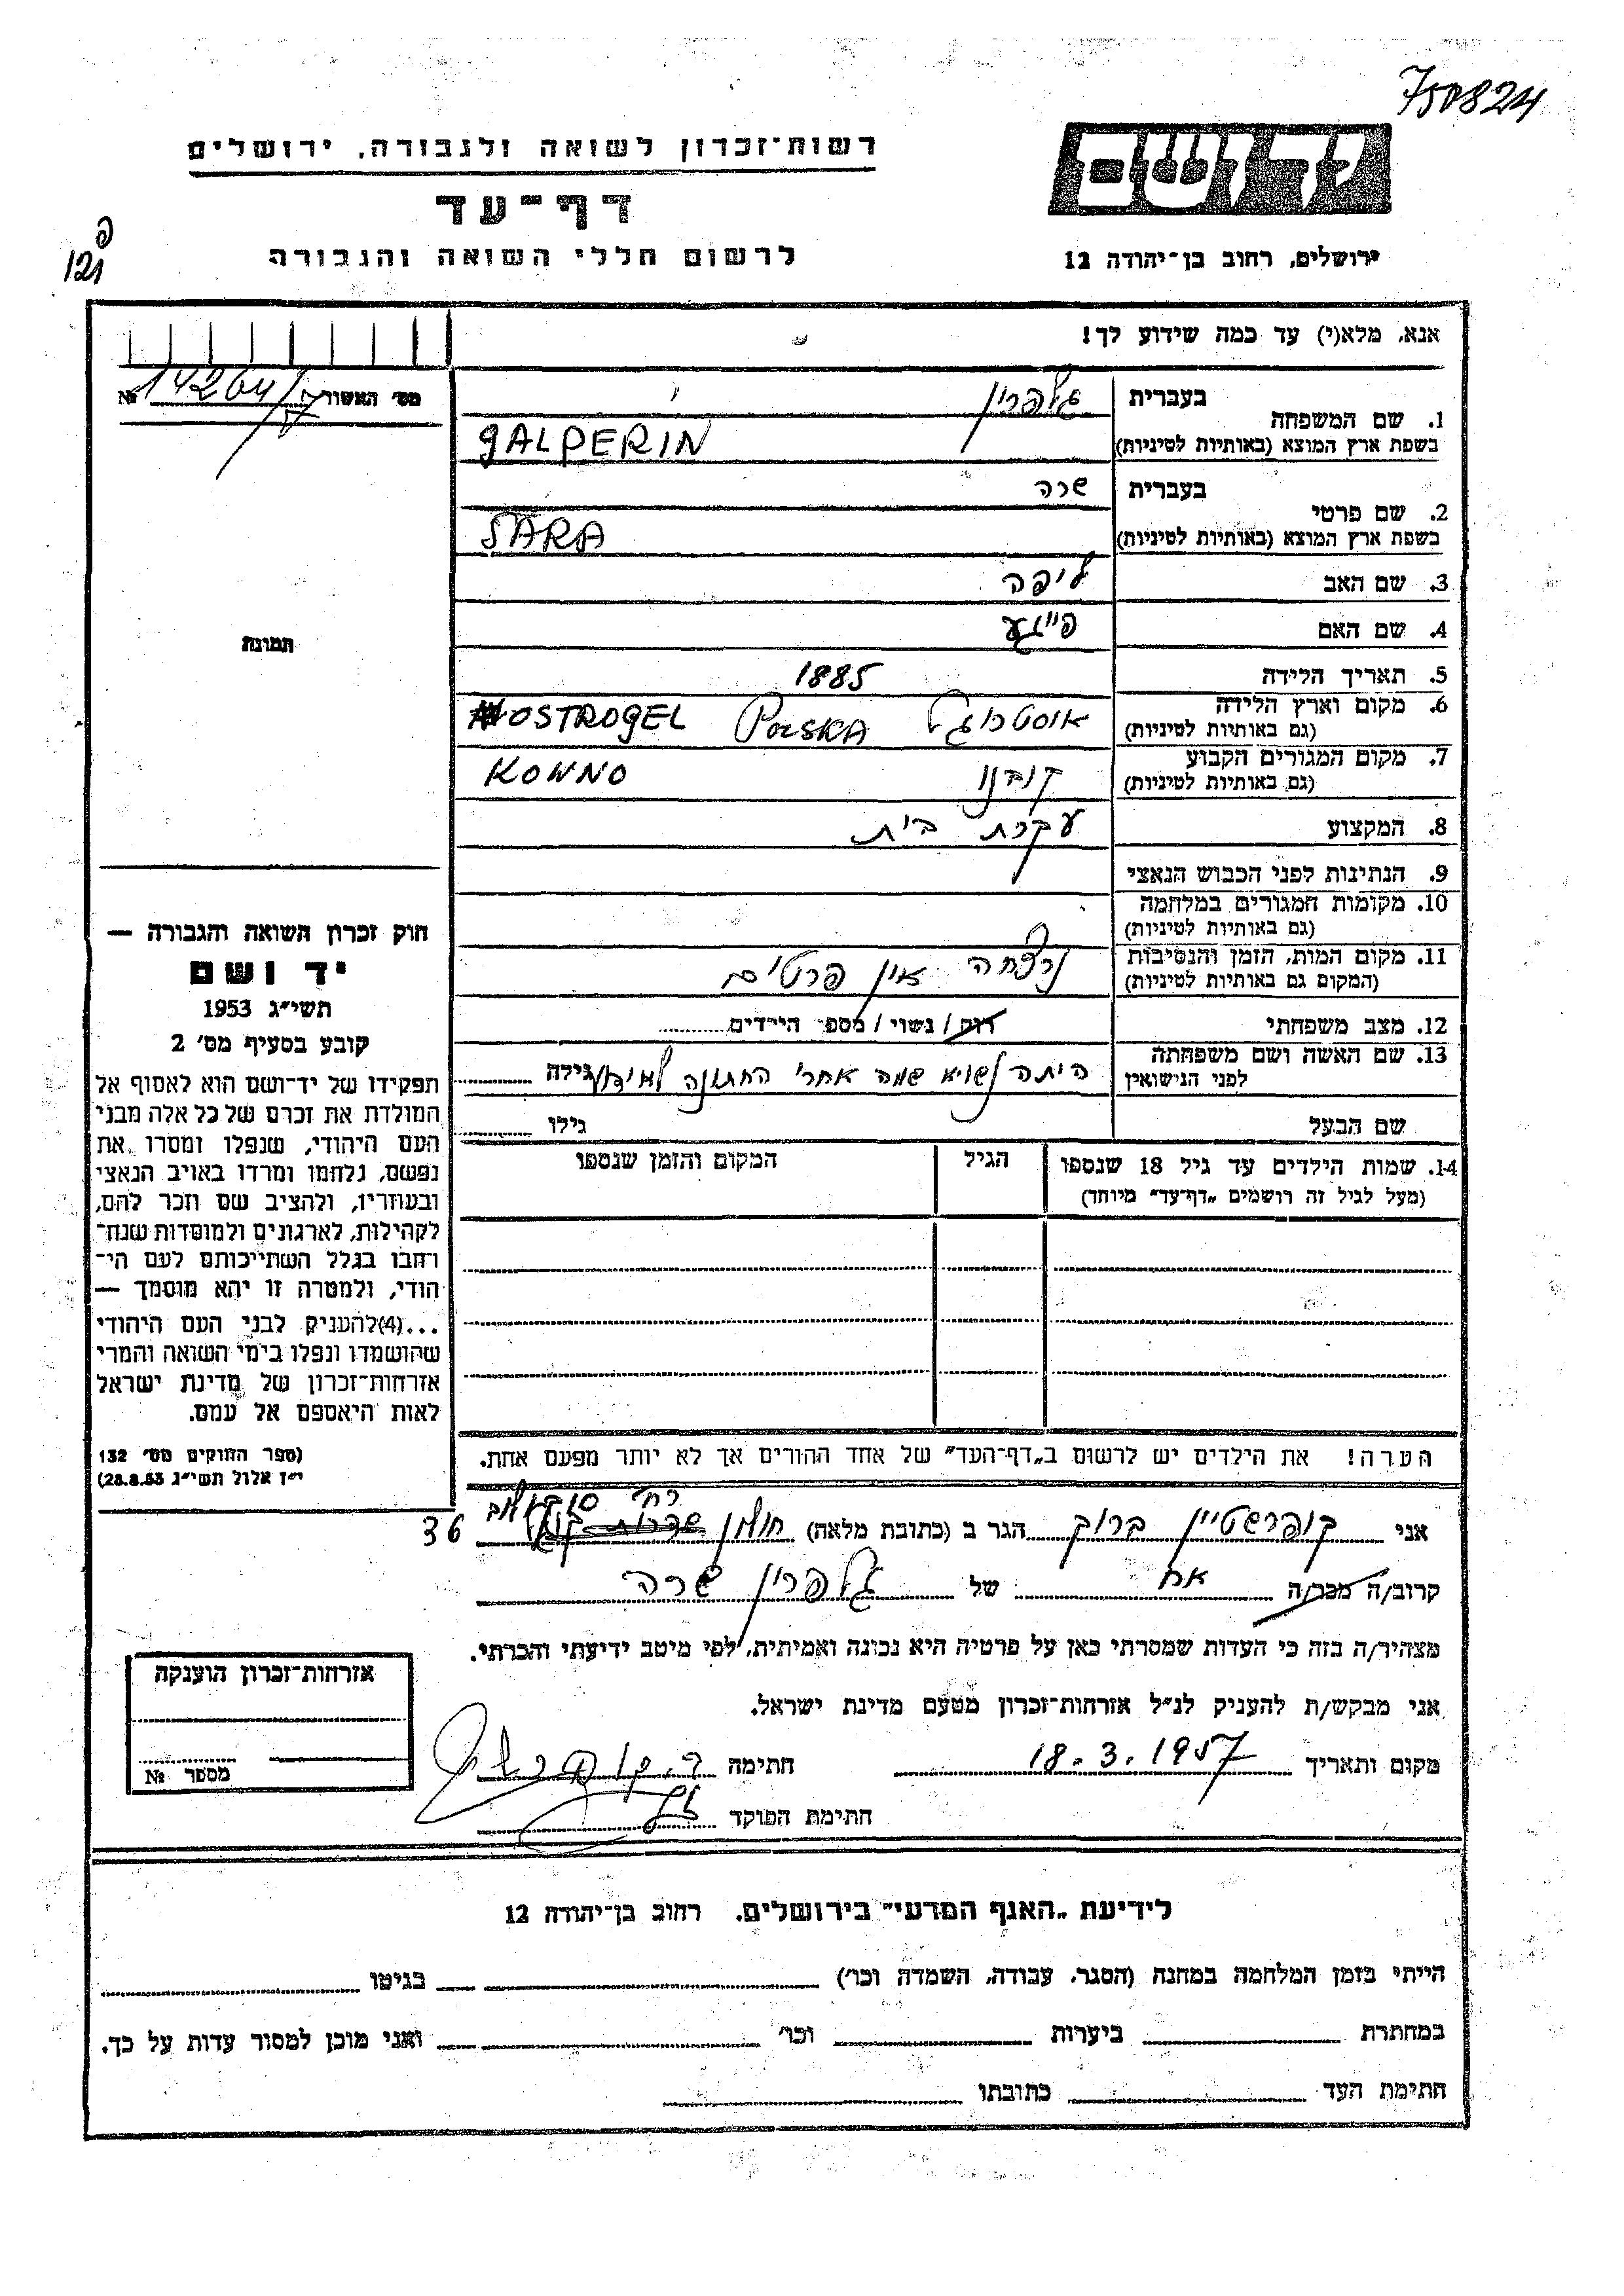 750824
רשות־זכרון לשואה ולגבורה, ירושלים
דף־עד
לרשום חללי השואה והגבורה
יד ושם
ירושלים, רחוב בן־יהודה 12
פ
121
אנא, מלא(י) עד כמה שידוע לך!
מס׳ האשור № 14264/
1. שם המשפחה
בעברית גלפרין
בשפת ארץ המוצא (באותיות לטיניות) GALPERIN
2. שם פרטי
בעברית שרה
בשפת ארץ המוצא (באותיות לטיניות) SARA
3. שם האב ליפה
4. שם האם פייגע
5. תאריך הלידה 1885
6. מקום וארץ הלידה אוסטרוגל POLSKA OSTROGEL
(גם באותיות לטיניות)
7. מקום המגורים הקבוע קובנו KOWNO
(גם באותיות לטיניות)
8. המקצוע עקרת בית
9. הנתינות לפני הכבוש הנאצי
10. מקומות המגורים במלחמה
(גם באותיות לטיניות)
11. מקום המות, הזמן והנסיבות נרצחה אין פרטים
(המקום גם באותיות לטיניות)
12. מצב משפחתי רוק / נשוי / מספר הילדים
13. שם האשה ושם משפחתה
לפני הנישואין היתה נשויא שמה אחרי החתונה גילה
שם הבעל גילו
14. שמות הילדים עד גיל 18 שנספו הגיל המקום והזמן שנספו
(מעל לגיל זה רושמים „דף־עד״ מיוחד)
הערה! את הילדים יש לרשום ב„דף־העד״ של אחד ההורים אך לא יותר מפעם אחת.
תמונה
חוק זכרון השואה והגבורה —
יד ושם
תשי״ג 1953
קובע בסעיף מס׳ 2
תפקידו של יד־ושם הוא לאסוף אל
המולדת את זכרם של כל אלה מבני
העם היהודי, שנפלו ומסרו את
נפשם, נלחמו ומרדו באויב הנאצי
ובעוזריו, ולהציב שם וזכר להם,
לקהילות, לארגונים ולמוסדות שנח־
רבו בגלל השתייכותם לעם הי־
הודי, ולמטרה זו יהא מוסמך —
...(4)להעניק לבני העם היהודי
שהושמדו ונפלו בימי השואה והמרי
אזרחות־זכרון של מדינת ישראל
לאות היאספם אל עמם.
(ספר החוקים מס׳ 132
י״ז אלול תשי״ג 28.8.53)
אני קופרשטיין ברוך הגר ב (כתובת מלאה) חולון רח׳ סוקולוב 36
קרוב/ה מכר/ה אח של גלפרין שרה
מצהיר/ה בזה כי העדות שמסרתי כאן על פרטיה היא נכונה ואמיתית, לפי מיטב ידיעתי והכרתי.
אני מבקש/ת להעניק לנ״ל אזרחות־זכרון מטעם מדינת ישראל.
מקום ותאריך 18.3.1957 חתימה
חתימת הפוקד
אזרחות־זכרון הוענקה
מספר №
לידיעת „האגף המדעי״ בירושלים, רחוב בן־יהודה 12
הייתי בזמן המלחמה במחנה (הסגר, עבודה, השמדה וכו׳) בגיטו
במחתרת ביערות וכו׳ ואני מוכן למסור עדות על כך.
חתימת העד כתובתו